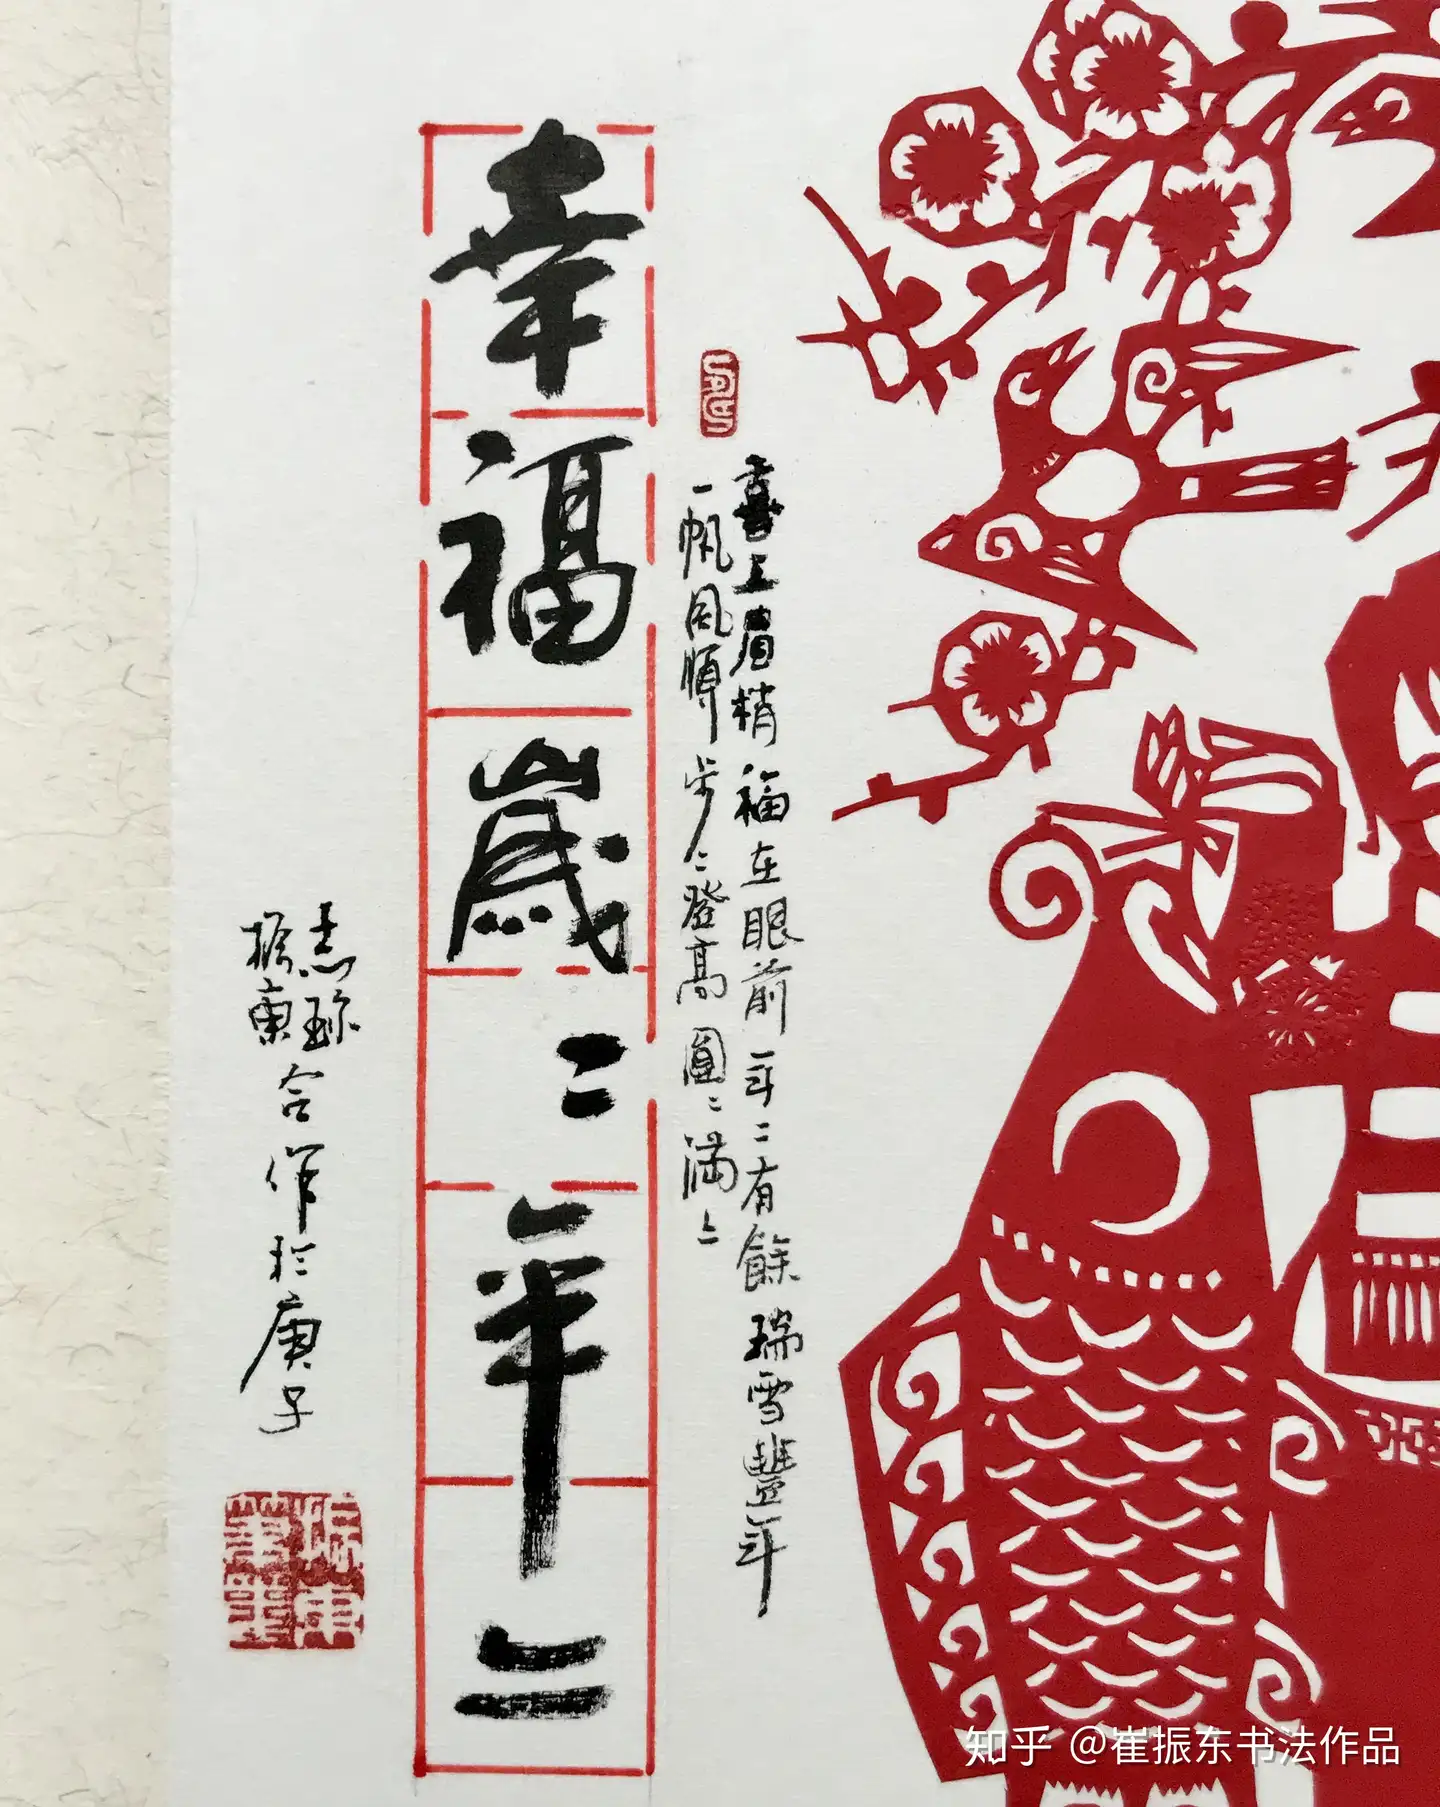 喜上眉梢福在眼前年二有餘瑞雪豐年
一帆風順步二登高圓二滿二
幸福歲二年二
志珍
振東
合作於庚子
振東
知乎 @崔振东书法作品